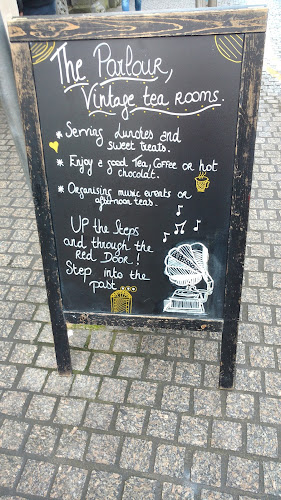 The Parlour,
Vintage tea rooms.
* Serving Lunches and
sweet treats.
* Enjoy a good Tea, Coffee or hot
chocolat.
* Organising music events or
afternoon teas.
UP the Steps
and through the
Red Door!
Step into the
past